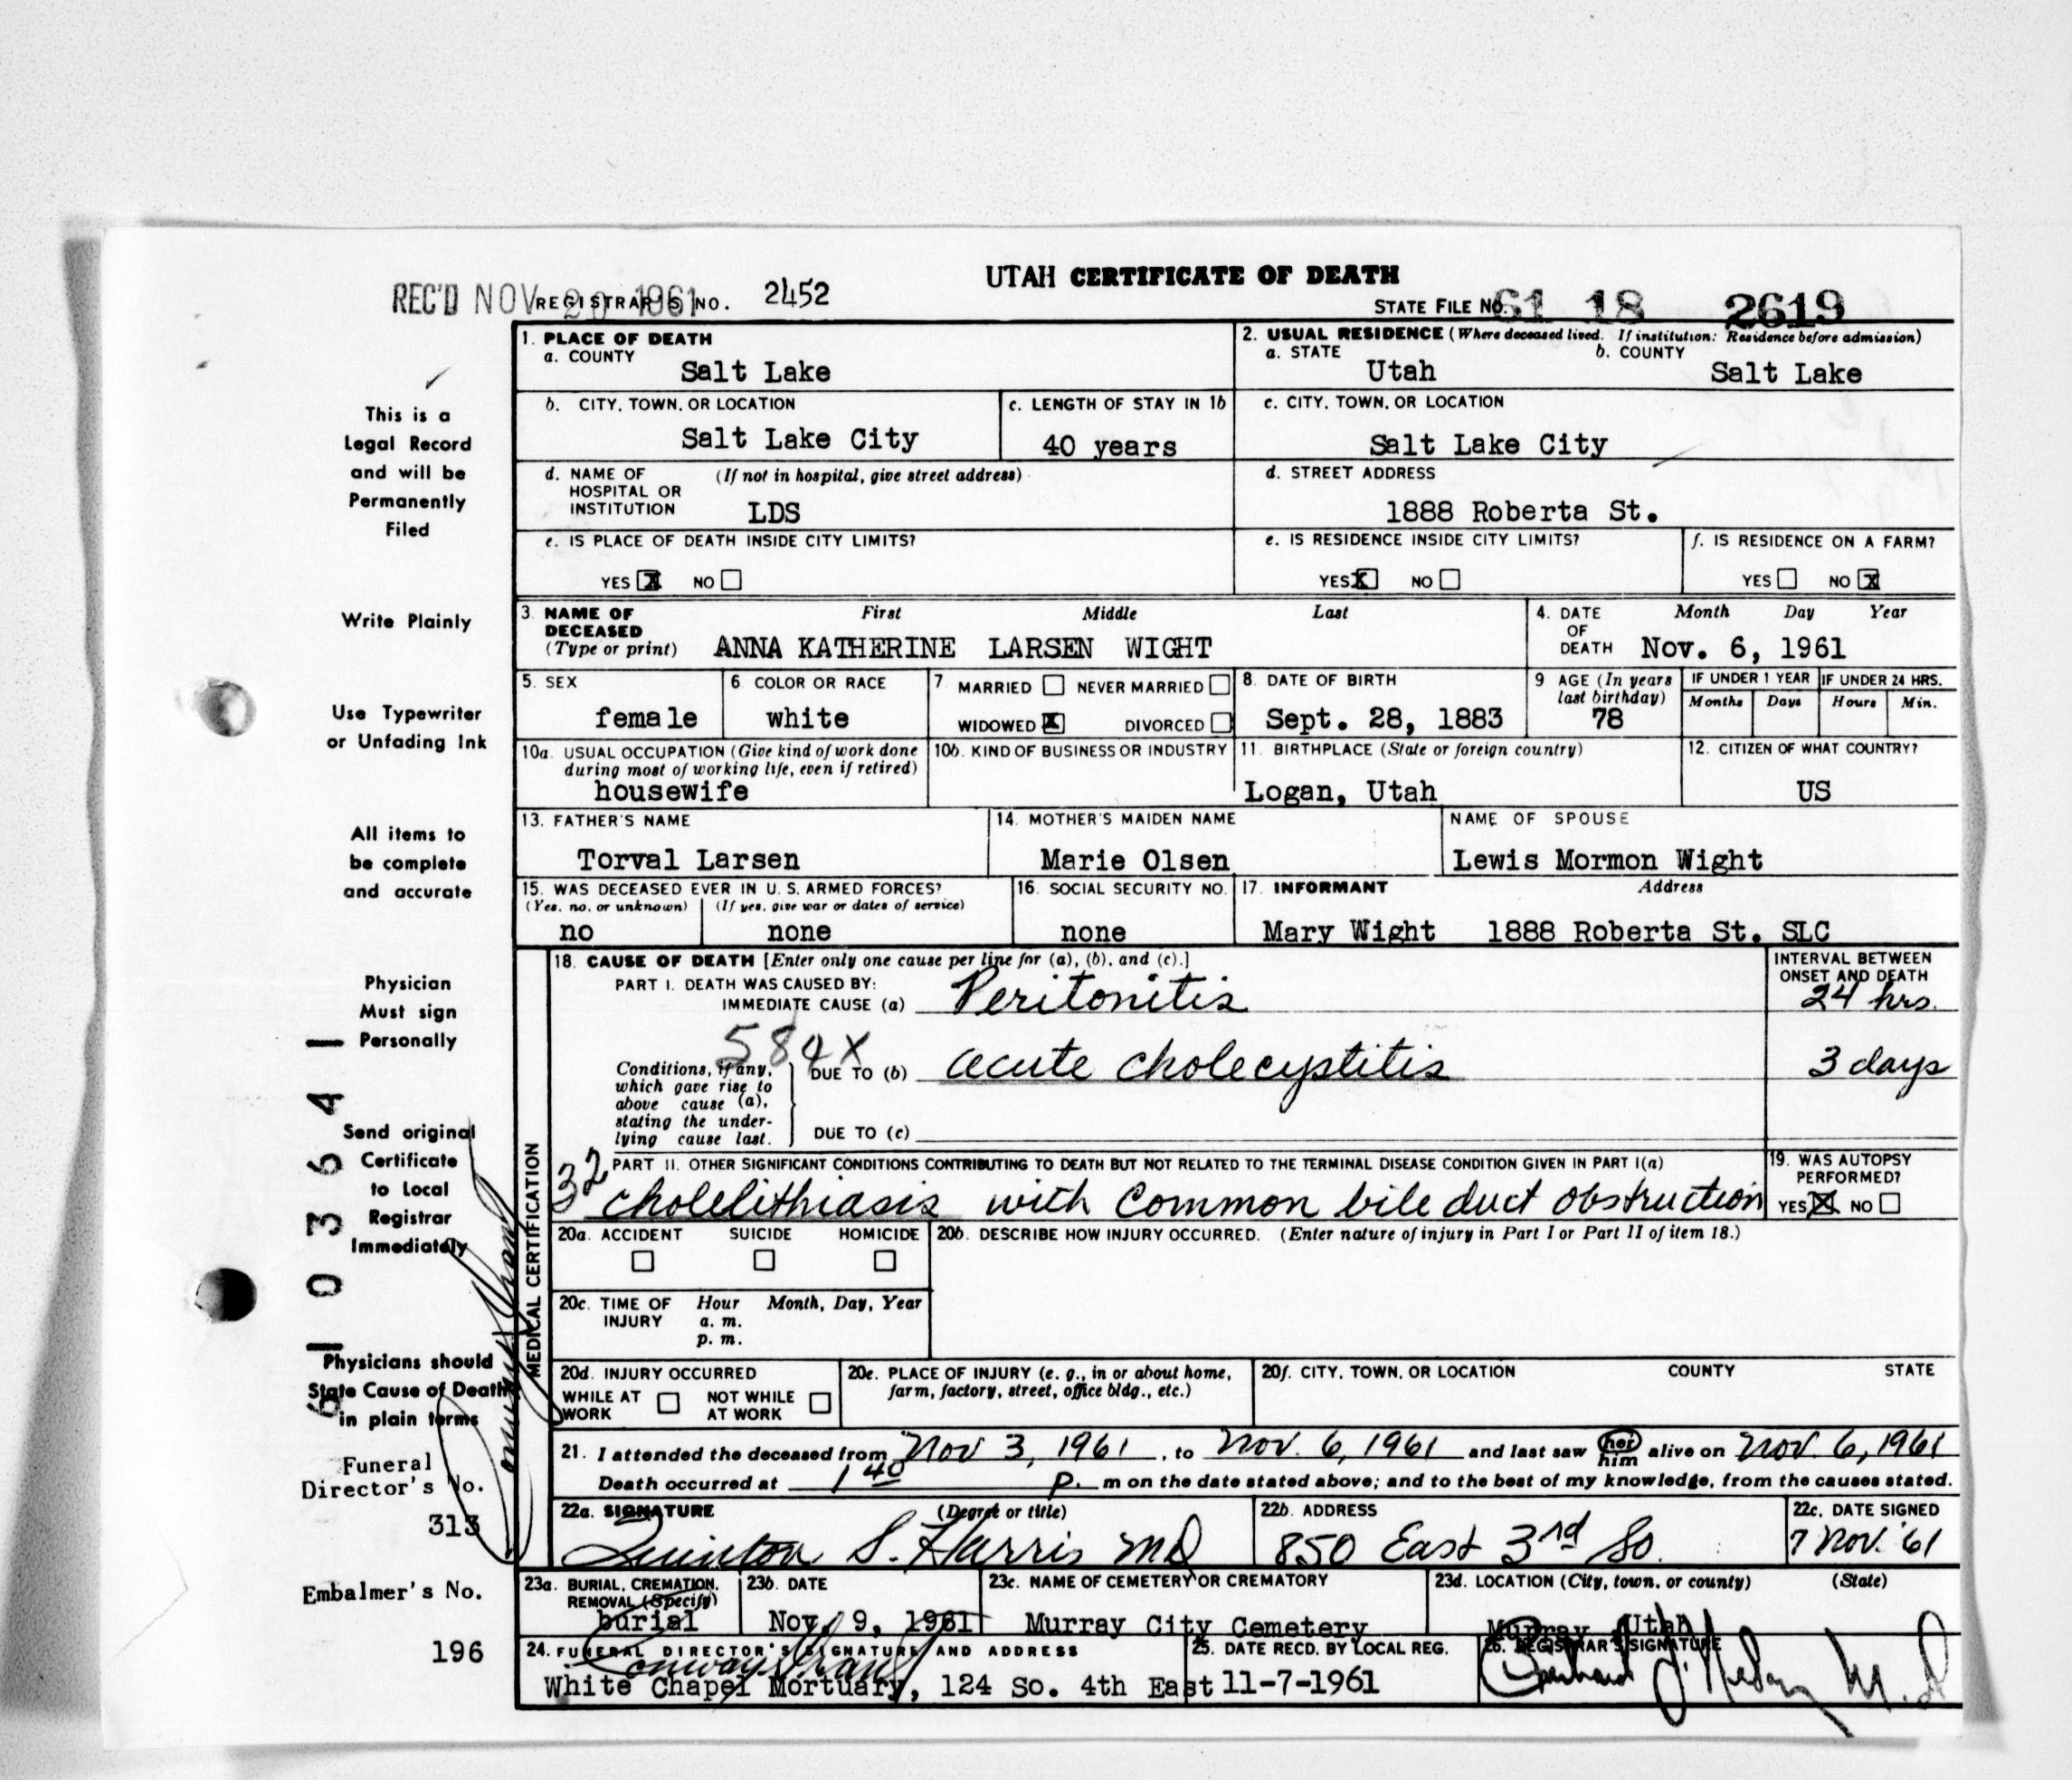 UTAH CERTIFICATE OF DEATH
REC'D NOV 20 1961 REGISTRAR'S NO. 2452
STATE FILE NO. 61 18 2619
This is a
Legal Record
and will be
Permanently
Filed
Write Plainly
Use Typewriter
or Unfading Ink
All items to
be complete
and accurate
Physician
Must sign
Personally
Send original
Certificate
to Local
Registrar
Immediately
Physicians should
State Cause of Death
in plain terms
Funeral
Director's No.
313
Embalmer's No.
196
1. PLACE OF DEATH
a. COUNTY
Salt Lake
2. USUAL RESIDENCE (Where deceased lived. If institution: Residence before admission)
a. STATE b. COUNTY
Utah Salt Lake
b. CITY, TOWN, OR LOCATION
Salt Lake City
c. LENGTH OF STAY IN 1b
40 years
c. CITY, TOWN, OR LOCATION
Salt Lake City
d. NAME OF (If not in hospital, give street address)
HOSPITAL OR
INSTITUTION LDS
d. STREET ADDRESS
1888 Roberta St.
e. IS PLACE OF DEATH INSIDE CITY LIMITS?
YES X NO
e. IS RESIDENCE INSIDE CITY LIMITS?
YES X NO
f. IS RESIDENCE ON A FARM?
YES NO X
3. NAME OF First Middle Last
DECEASED
(Type or print) ANNA KATHERINE LARSEN WIGHT
4. DATE Month Day Year
OF
DEATH Nov. 6, 1961
5. SEX
female
6. COLOR OR RACE
white
7. MARRIED NEVER MARRIED
WIDOWED X DIVORCED
8. DATE OF BIRTH
Sept. 28, 1883
9. AGE (In years
last birthday)
78
IF UNDER 1 YEAR IF UNDER 24 HRS.
Months Days Hours Min.
10a. USUAL OCCUPATION (Give kind of work done
during most of working life, even if retired)
housewife
10b. KIND OF BUSINESS OR INDUSTRY
11. BIRTHPLACE (State or foreign country)
Logan, Utah
12. CITIZEN OF WHAT COUNTRY?
US
13. FATHER'S NAME
Torval Larsen
14. MOTHER'S MAIDEN NAME
Marie Olsen
NAME OF SPOUSE
Lewis Mormon Wight
15. WAS DECEASED EVER IN U. S. ARMED FORCES?
(Yes, no, or unknown) (If yes, give war or dates of service)
no none
16. SOCIAL SECURITY NO.
none
17. INFORMANT Address
Mary Wight 1888 Roberta St. SLC
MEDICAL CERTIFICATION
18. CAUSE OF DEATH [Enter only one cause per line for (a), (b), and (c).]
INTERVAL BETWEEN
ONSET AND DEATH
PART I. DEATH WAS CAUSED BY:
IMMEDIATE CAUSE (a) Peritonitis 24 hrs.
584X
Conditions, if any,
which gave rise to
above cause (a),
stating the under-
lying cause last.
DUE TO (b) acute cholecystitis 3 days
DUE TO (c)
PART II. OTHER SIGNIFICANT CONDITIONS CONTRIBUTING TO DEATH BUT NOT RELATED TO THE TERMINAL DISEASE CONDITION GIVEN IN PART I(a)
32
cholelithiasis with common bile duct obstruction
19. WAS AUTOPSY
PERFORMED?
YES X NO
20a. ACCIDENT SUICIDE HOMICIDE
20b. DESCRIBE HOW INJURY OCCURRED. (Enter nature of injury in Part I or Part II of item 18.)
20c. TIME OF Hour Month, Day, Year
INJURY a. m.
p. m.
20d. INJURY OCCURRED
WHILE AT NOT WHILE
WORK AT WORK
20e. PLACE OF INJURY (e. g., in or about home,
farm, factory, street, office bldg., etc.)
20f. CITY, TOWN, OR LOCATION COUNTY STATE
21. I attended the deceased from Nov 3, 1961, to Nov. 6, 1961 and last saw her him alive on Nov. 6, 1961
Death occurred at 1 40 P. m on the date stated above; and to the best of my knowledge, from the causes stated.
22a. SIGNATURE (Degree or title)
Quinton S. Harris MD
22b. ADDRESS
850 East 3rd So.
22c. DATE SIGNED
7 Nov. '61
23a. BURIAL, CREMATION,
REMOVAL (Specify)
burial
23b. DATE
Nov. 9, 1961
23c. NAME OF CEMETERY OR CREMATORY
Murray City Cemetery
23d. LOCATION (City, town, or county) (State)
Murray Utah
24. FUNERAL DIRECTOR'S SIGNATURE AND ADDRESS
White Chapel Mortuary, 124 So. 4th East
25. DATE RECD. BY LOCAL REG.
11-7-1961
26. REGISTRAR'S SIGNATURE
M.D